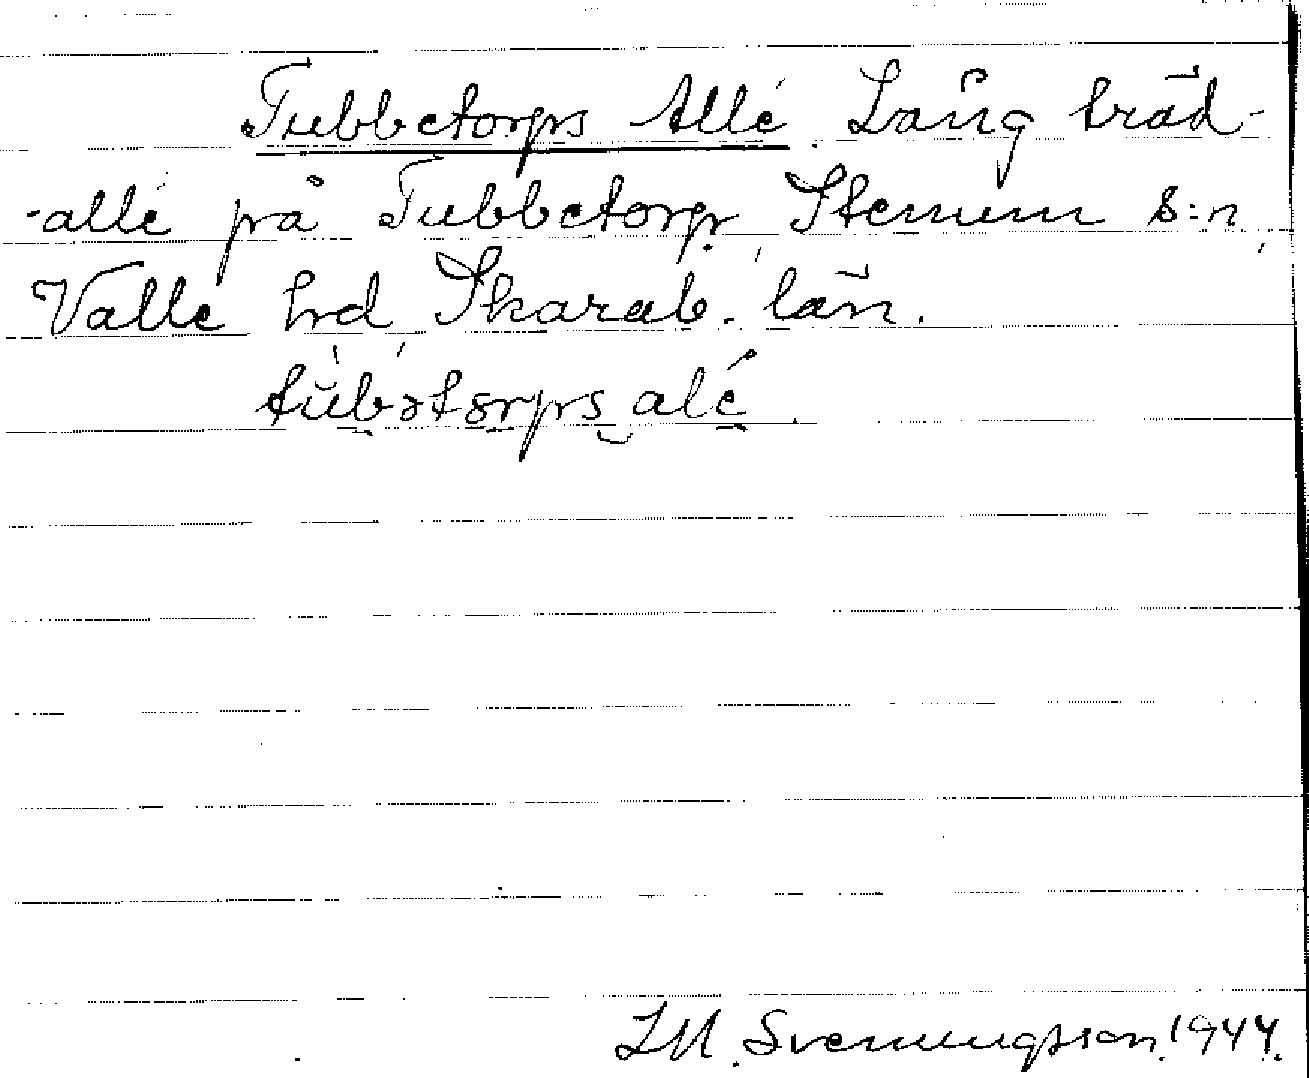 Tubbetorps Allé. Lång träd-
-allé på Tubbetorp, Stenum s:n,
Valle hd Skarab. län.
tùbətɔrps alé.
LM. Svenungsson. 1944.